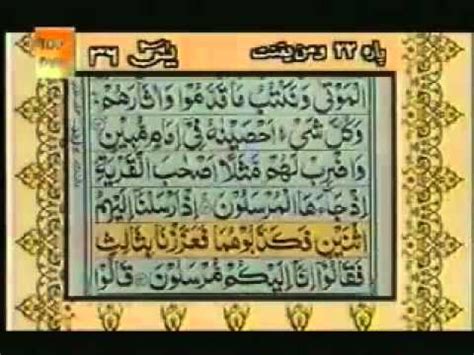 پاره ٢٢ ومن یقنت یٰسٓ ٣٦
الْمَوْتٰى وَنَكْتُبُ مَا قَدَّمُوْا وَاٰثَارَهُمْ ؕ
وَكُلَّ شَیْءٍ اَحْصَیْنٰهُ فِیْۤ اِمَامٍ مُّبِیْنٍ
وَاضْرِبْ لَهُمْ مَّثَلًا اَصْحٰبَ الْقَرْیَةِ ۘ
اِذْ جَآءَهَا الْمُرْسَلُوْنَ اِذْ اَرْسَلْنَاۤ اِلَیْهِمُ
اثْنَیْنِ فَكَذَّبُوْهُمَا فَعَزَّزْنَا بِثَالِثٍ
فَقَالُوْۤا اِنَّاۤ اِلَیْكُمْ مُّرْسَلُوْنَ قَالُوْا